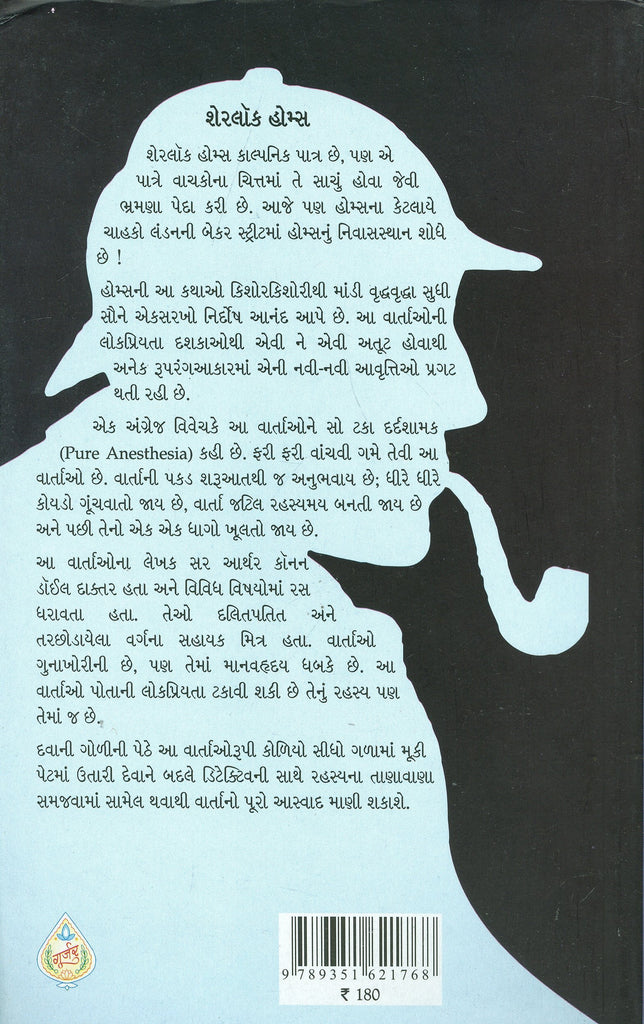 શેરલૉક હોમ્સ
શેરલૉક હોમ્સ કાલ્પનિક પાત્ર છે, પણ એ
પાત્રે વાચકોના ચિત્તમાં તે સાચું હોવા જેવી
ભ્રમણા પેદા કરી છે. આજે પણ હોમ્સના કેટલાયે
ચાહકો લંડનની બેકર સ્ટ્રીટમાં હોમ્સનું નિવાસસ્થાન શોધે
છે !
હોમ્સની આ કથાઓ કિશોરકિશોરીથી માંડી વૃદ્ધવૃદ્ધા સુધી
સૌને એકસરખો નિર્દોષ આનંદ આપે છે. આ વાર્તાઓની
લોકપ્રિયતા દશકાઓથી એવી ને એવી અતૂટ હોવાથી
અનેક રૂપરંગઆકારમાં એની નવી-નવી આવૃત્તિઓ પ્રગટ
થતી રહી છે.
એક અંગ્રેજ વિવેચકે આ વાર્તાઓને સો ટકા દર્દશામક
(Pure Anesthesia) કહી છે. ફરી ફરી વાંચવી ગમે તેવી આ
વાર્તાઓ છે. વાર્તાની પકડ શરૂઆતથી જ અનુભવાય છે; ધીરે ધીરે
કોયડો ગૂંચવાતો જાય છે, વાર્તા જટિલ રહસ્યમય બનતી જાય છે
અને પછી તેનો એક એક ધાગો ખૂલતો જાય છે.
આ વાર્તાઓના લેખક સર આર્થર કૉનન
ડૉઈલ દાક્તર હતા અને વિવિધ વિષયોમાં રસ
ધરાવતા હતા. તેઓ દલિતપતિત અંને
તરછોડાયેલા વર્ગના સહાયક મિત્ર હતા. વાર્તાઓ
ગુનાખોરીની છે, પણ તેમાં માનવહૃદય ધબકે છે. આ
વાર્તાઓ પોતાની લોકપ્રિયતા ટકાવી શકી છે તેનું રહસ્ય પણ
તેમાં જ છે.
દવાની ગોળીની પેઠે આ વાર્તાઓરૂપી કોળિયો સીધો ગળામાં મૂકી
પેટમાં ઉતારી દેવાને બદલે ડિટેક્ટિવની સાથે રહસ્યના તાણાવાણા
સમજવામાં સામેલ થવાથી વાર્તાનો પૂરો આસ્વાદ માણી શકાશે.
ગુર્જર
9 789351 621768
₹ 180